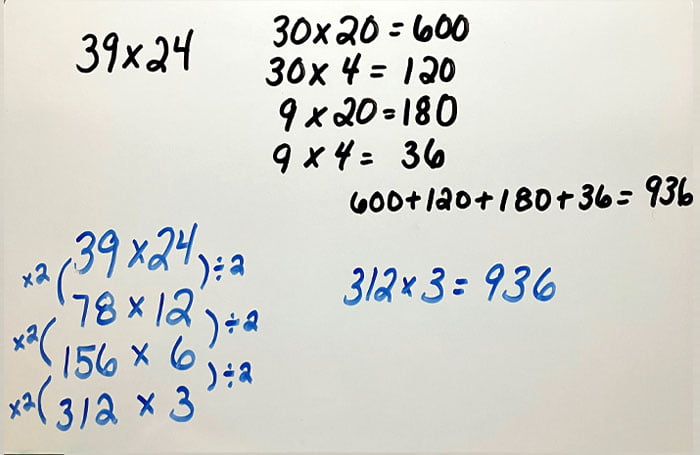 39x24
30x20=600
30x4=120
9x20=180
9x4=36
600+120+180+36=936
39x24
x2( )÷2
78x12
x2( )÷2
156x6
x2( )÷2
312x3
312x3=936